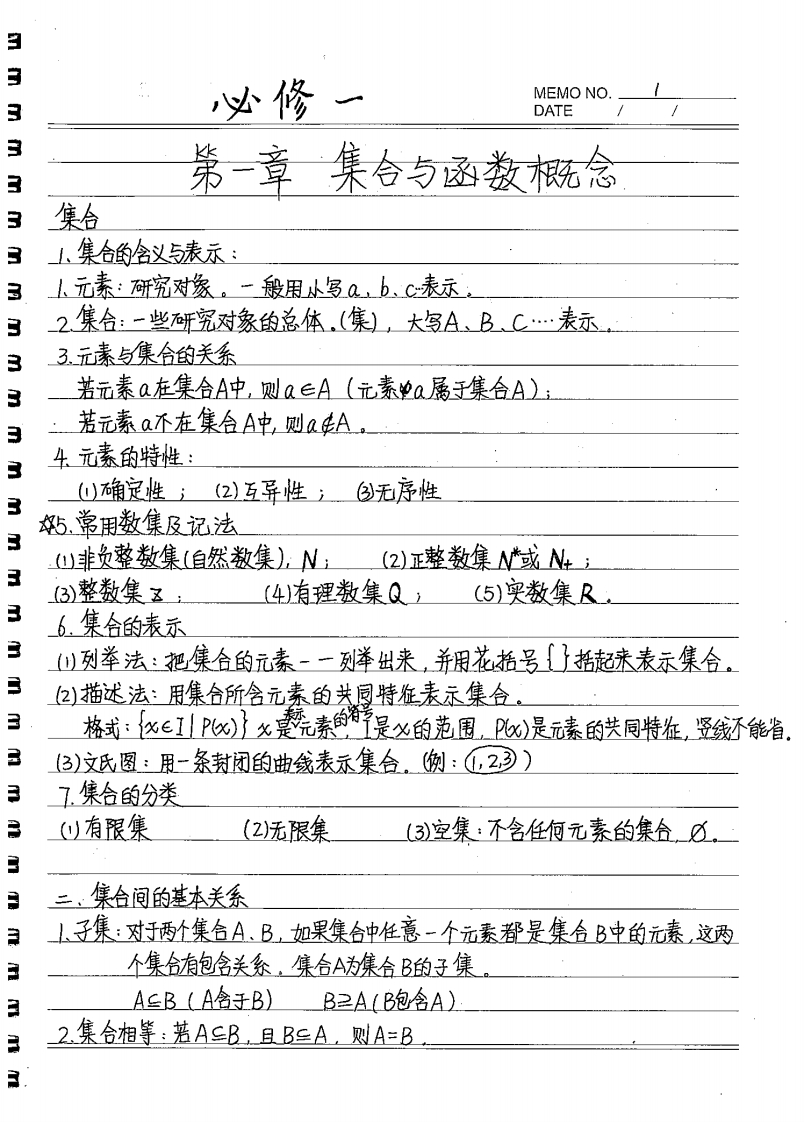 必修一
MEMO NO. 1
DATE / /
第一章 集合与函数概念
集合
1. 集合的含义与表示：
1. 元素：研究对象。一般用小写a、b、c…表示。
2. 集合：一些研究对象的总体。(集)，大写A、B、C……表示。
3. 元素与集合的关系
若元素a在集合A中，则a∈A（元素a属于集合A）；
若元素a不在集合A中，则a∉A。
4. 元素的特性：
(1)确定性； (2)互异性； (3)无序性
☆5. 常用数集及记法
(1)非负整数集(自然数集)，N； (2)正整数集N*或N+；
(3)整数集Z； (4)有理数集Q； (5)实数集R.
6. 集合的表示
(1)列举法：把集合的元素一一列举出来，并用花括号{}括起来表示集合。
(2)描述法：用集合所含元素的共同特征表示集合。
格式：{x∈I|P(x)} x是表示元素的符号，I是x的范围，P(x)是元素的共同特征，竖线不能省.
(3)文氏图：用一条封闭的曲线表示集合。(例：1,2,3)
7. 集合的分类
(1)有限集 (2)无限集 (3)空集：不含任何元素的集合，∅。
二、集合间的基本关系
1. 子集：对于两个集合A、B，如果集合中任意一个元素都是集合B中的元素，这两
个集合有包含关系。集合A为集合B的子集。
A⊆B（A含于B） B⊇A（B包含A）
2. 集合相等：若A⊆B，且B⊆A，则A=B.